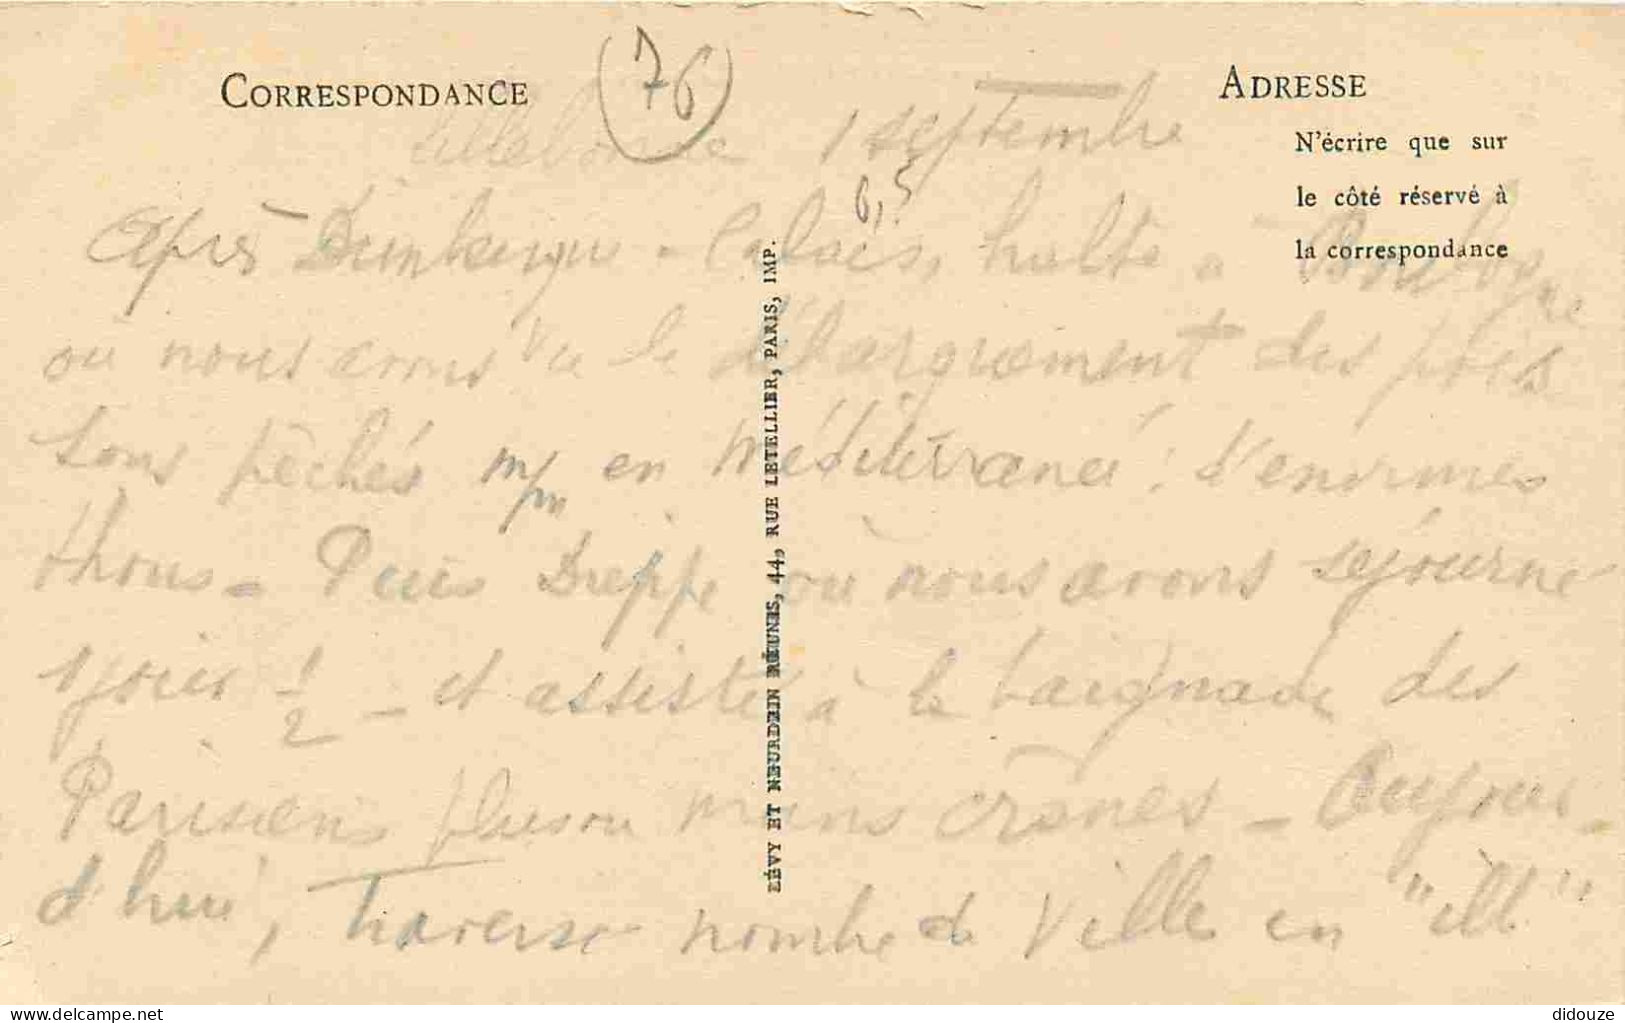 CORRESPONDANCE
(76)
ADRESSE
N'écrire que sur
le côté réservé à
la correspondance
Lillebonne 1 septembre
6,5
Après Dunkerque - Calais, halte à Boulogne
où nous avons vu le débarquement des pois
sons pêchés en Méditerranée : d'énormes
thons - Puis Dieppe où nous avons séjourné
1 jour 1/2 - et assisté à la baignade des
Parisiens plus ou moins crânes - Aujour-
d'hui, traversé nombre de Ville en "ill"
LÉVY ET NEURDEIN RÉUNIS, 44, RUE LETELLIER, PARIS, IMP.
delcampe.net
didouze